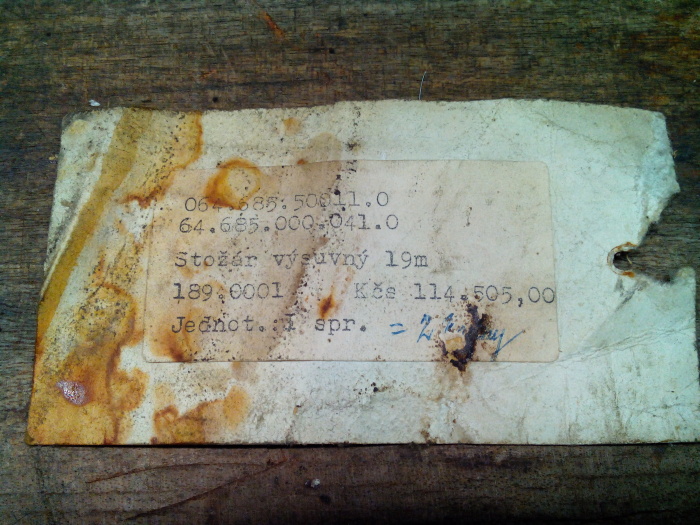 064.685.50011.0
64.685.000.041.0
Stožár výsuvný 19m
189.0001 Kčs 114.505,00
Jednot. 1 spr. = 2